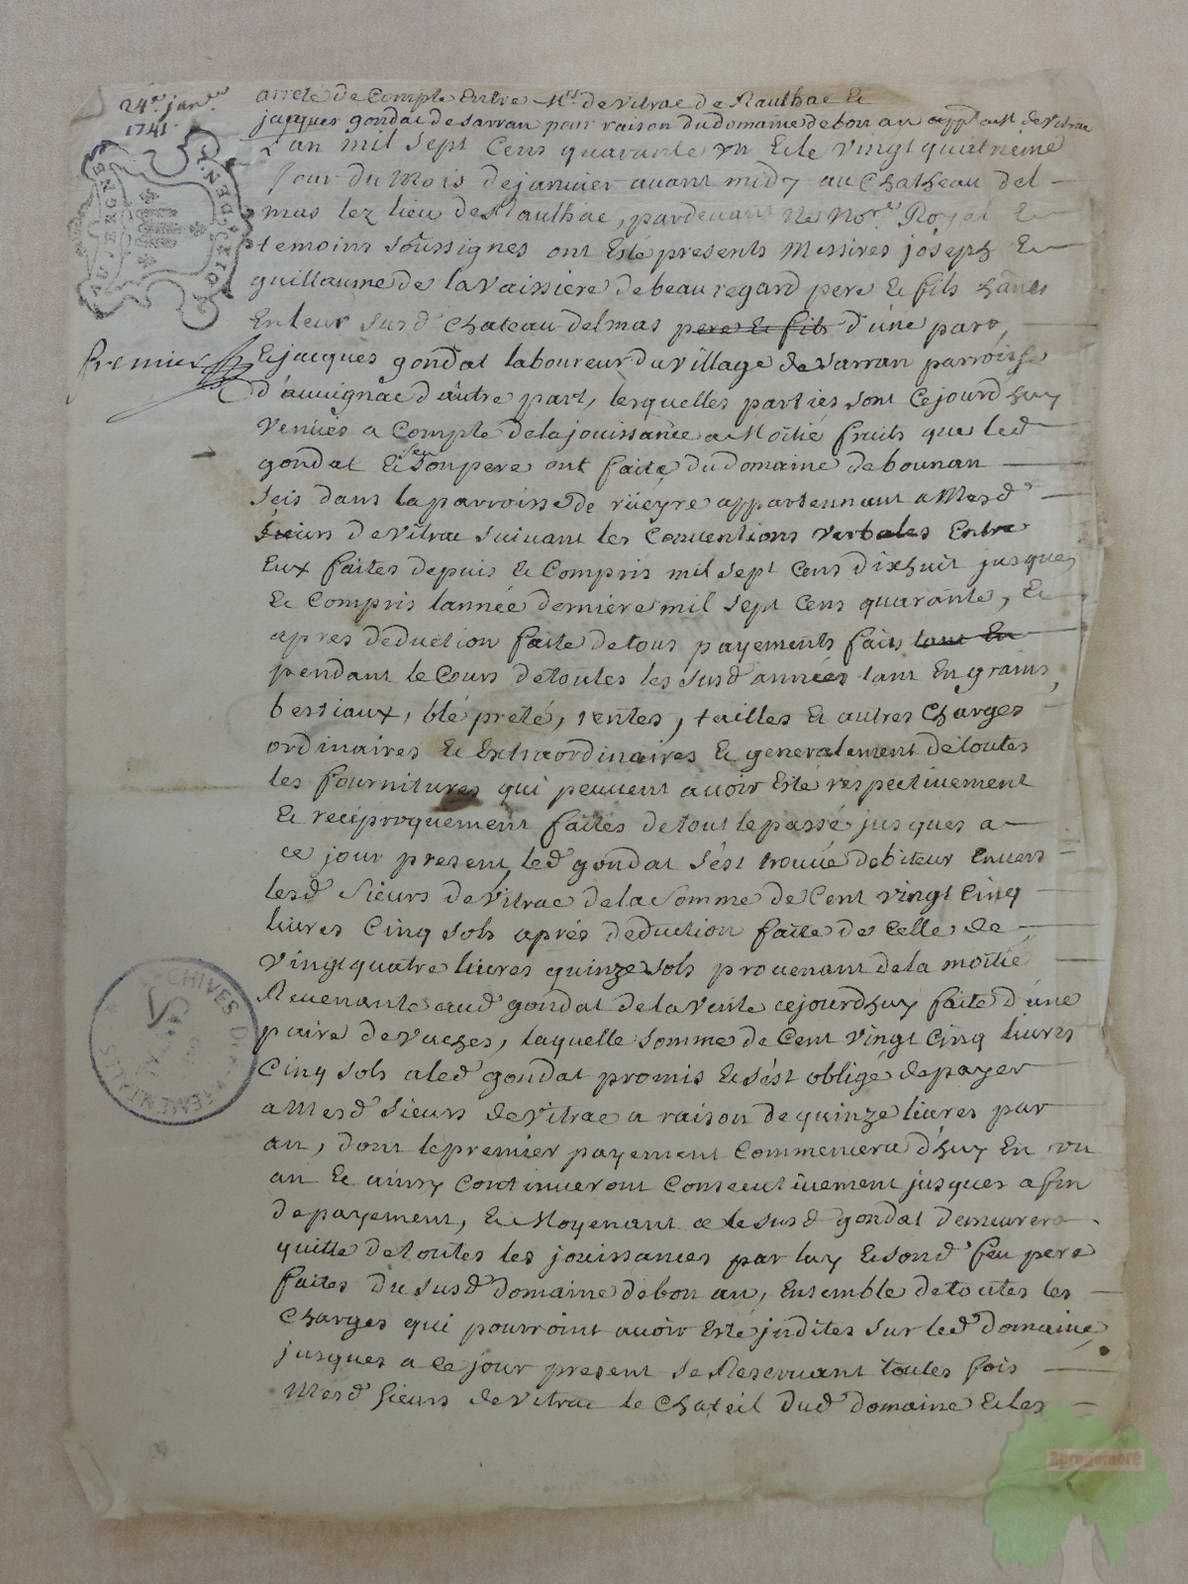 24e janer
1741
arreté de Compte Entre Mrs de vitrac de Raulhac Et
jacques gondal de sarran pour raison du domaine de bou an appt auxd de vitrac
L'an mil sept Cens quarante un Et le vingt quatrieme
jour du Mois de janvier avant midy au Chatheau del
mas lez lieu de Raulhac, pardevant Ne Nore Royal Et
temoins soussignes ont Esté presents Messires joseph Et
guillaume de la Vaissiere de beauregard pere Et fils hãnts
En leur susd Chateau delmas pere Et fils d'une part,
Premier
Et jacques gondal laboureur du village de sarran parroisse
d'auvignac d'autre part, lesquelles parties sont Cejourdhuy
Venues a Compte de la jouissance a Moitié fruits que led
gondal Et son feu pere ont faite du domaine de bounan
scis dans la parroisse de rüeyre appartennant a Mesd
sieurs de vitrac suivant les Conventions verbales Entre
Eux faites depuis Et Compris mil sept Cens dixhuit jusques
Et Compris lannée derniere mil sept Cens quarante, Et
apres deduction faite de tous payements faits tant En
pendant le Cours de toutes les susd années tant En grains,
bestiaux, blé preté, rentes, tailles Et autres Charges
ordinaires Et Extraordinaires Et generalement de toutes
les fournitures qui peuvent avoir Esté respectivement
Et reciproquement faites de tout le passé jusques a
ce jour present, led gondal s'est trouvé debiteur Envers
lesd sieurs de vitrac de la somme de Cent vingt Cinq
livres Cinq sols aprés deduction faite de Celle de
vingt quatre livres quinze sols provenant de la moitié
Revenante aud gondal de la Vente cejourdhuy faite d'une
paire de vaches, laquelle somme de Cent vingt Cinq livres
Cinq sols a led gondal promis Et s'ést obligé de payer
a Mesd sieurs de vitrac a raison de quinze livres par
an, dont le premier payement Commencera d'huy En un
an Et ainsy Continueront Consecutivement jusques a fin
de payement, Et Moyenant ce le susd gondal demeurera
quitte de toutes les jouissances par luy Et sond feu pere
faites du susd domaine de bou an, Ensemble de toutes les
Charges qui pourroint avoir Esté jndites sur led domaine
jusques a ce jour present se Reservant toutes fois
Mesd sieurs de vitrac le Chateil dud domaine Et les
AUVERGNE
GEN
ARCHIVES DEPARTEMENTALES
Aprogemere